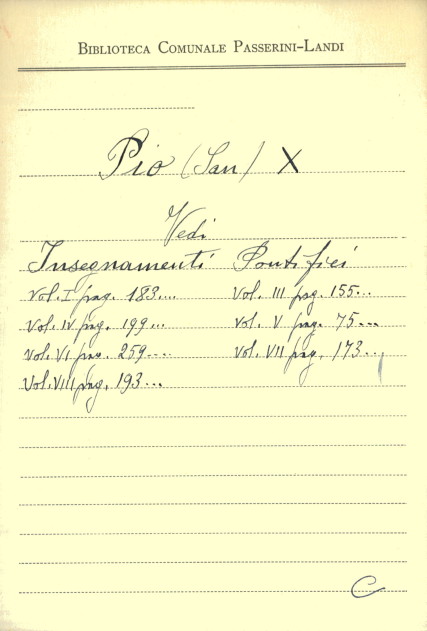 BIBLIOTECA COMUNALE PASSERINI-LANDI
Pio (San) X
Vedi
Insegnamenti Pontifici
Vol. I pag. 183... Vol. III pag. 155...
Vol. IV pag. 199... Vol. V pag. 75...
Vol. VI pag. 259... Vol. VII pag. 173...
Vol. VIII pag. 193...
C